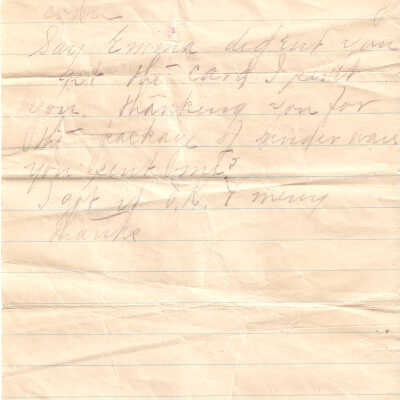 Say Emma didn't you
get the card I sent
you thanking you for
the package of
you sent
I got it O.K. & many
thanks